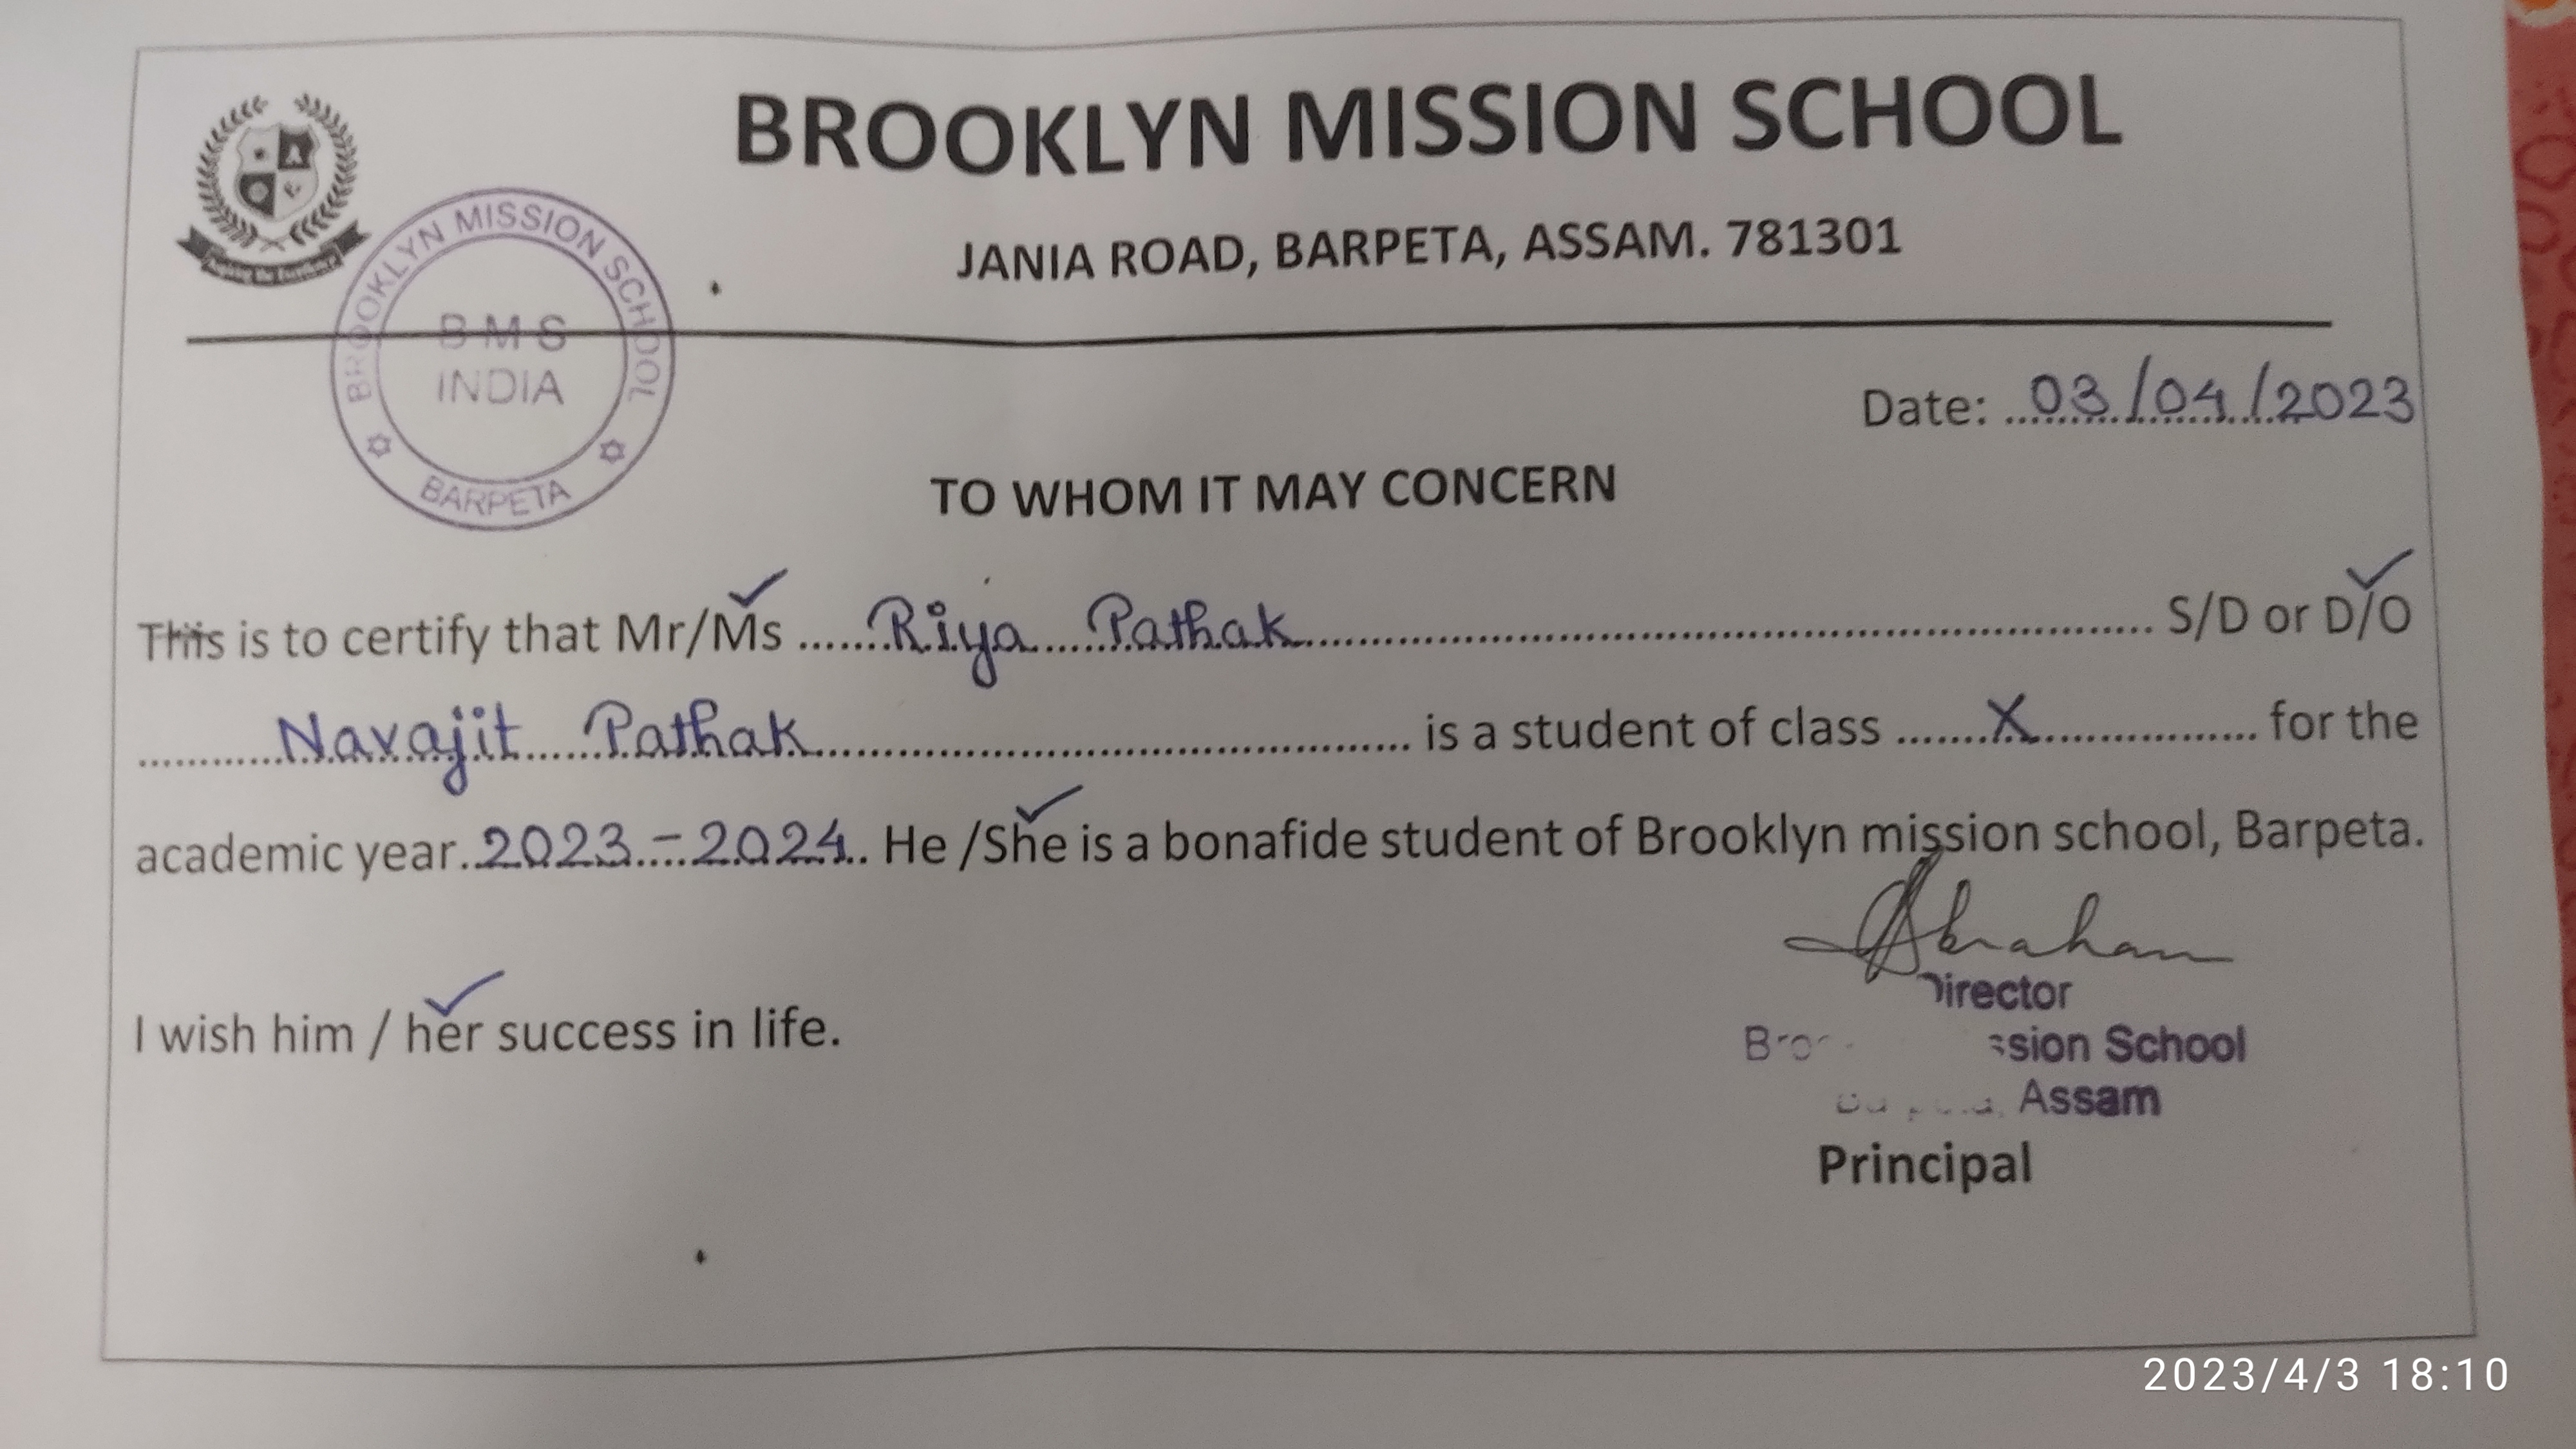 BROOKLYN MISSION SCHOOL
JANIA ROAD, BARPETA, ASSAM. 781301
BROOKLYN MISSION SCHOOL
B M S
INDIA
BARPETA
Date: 03/04/2023
TO WHOM IT MAY CONCERN
This is to certify that Mr/Ms ......Riya Pathak...... S/D or D/O
......Navajit Pathak...... is a student of class ......X...... for the
academic year..2023-2024.. He /She is a bonafide student of Brooklyn mission school, Barpeta.
Abraham
I wish him / her success in life.
Director
School
Assam
Principal
2023/4/3 18:10